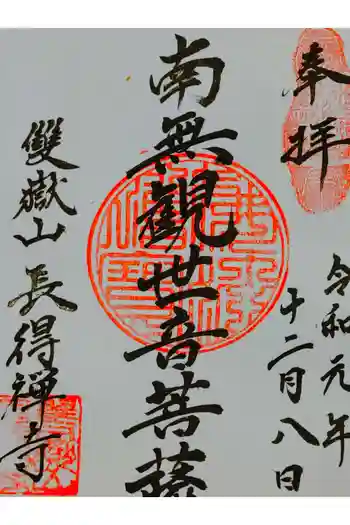 奉拝
令和元年
十二月八日
南無觀世音菩薩
雙嶽山
長得禅寺